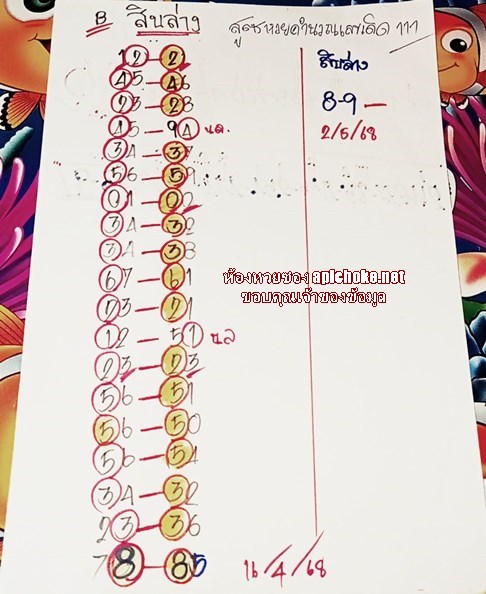 B สิบล่าง
สูตรหวยคำนวณเลขเด็ด 111
12 – 2
45 – 46
23 – 28
45 – 94 น.ล.
34 – 37
56 – 59
01 – 02
34 – 32
34 – 38
67 – 61
23 – 21
12 – 51 น.ล
23 – 23
56 – 51
56 – 50
56 – 54
34 – 32
23 – 36
78 – 85
16/4/68
สิบล่าง
8-9 –
2/5/68
ห้องหวยซอง apichoke.net
ขอบคุณเจ้าของข้อมูล